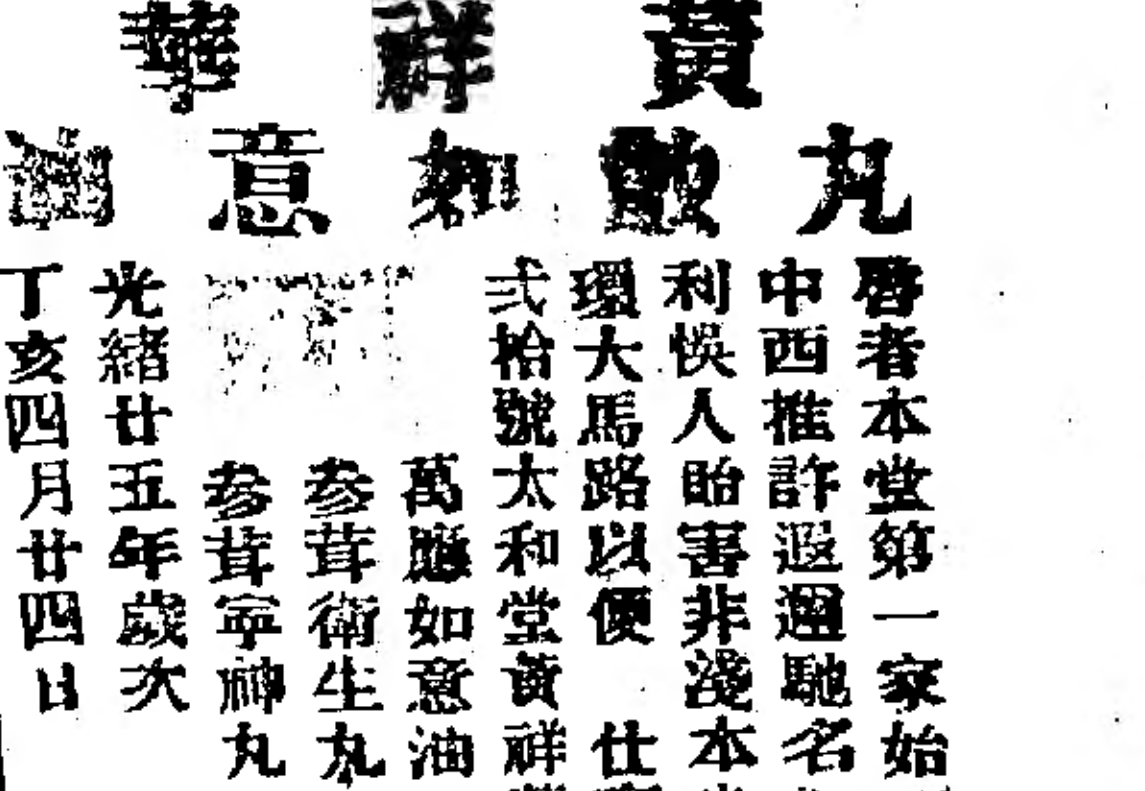 黃祥華
丸散如意油
啓者本堂第一家始
中西推許遐邇馳名
利悞人貽害非淺本
環大馬路以便 仕
弍拾號太和堂黃祥
萬應如意油
參茸衛生丸
參茸寧神丸
光緒廿五年歲次
丁亥四月廿四日